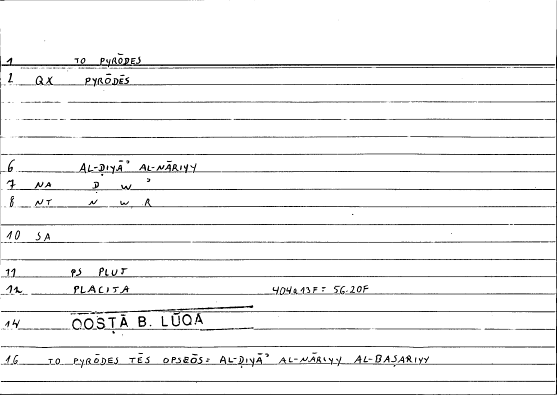 1 TO PYRŌDES
2 QX PYRŌDĒS
6 AL-ḌIYĀʾ AL-NĀRIYY
7 NA Ḍ W ʾ
8 NT N W R
10 SA
11 PS PLUT
12 PLACITA 404a13F = 56.20F
14 QOSṬĀ B. LŪQĀ
16 TO PYRŌDES TĒS OPSEŌS = AL-ḌIYĀʾ AL-NĀRIYY AL-BAṢARIYY